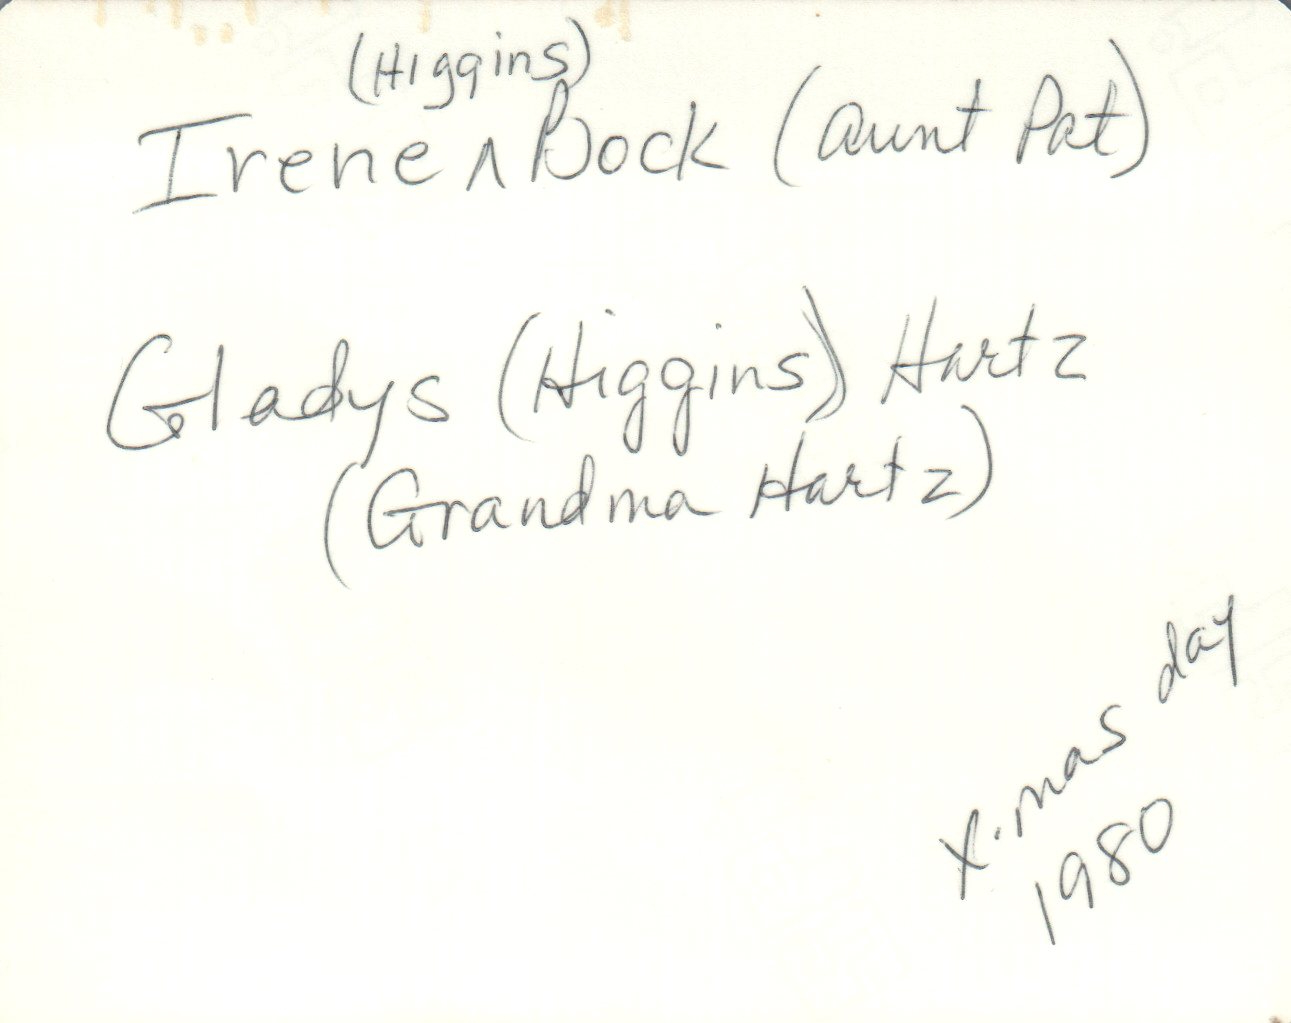 (Higgins)
Irene ^ Bock (Aunt Pat)
Gladys (Higgins) Hartz
(Grandma Hartz)
X-mas day
1980